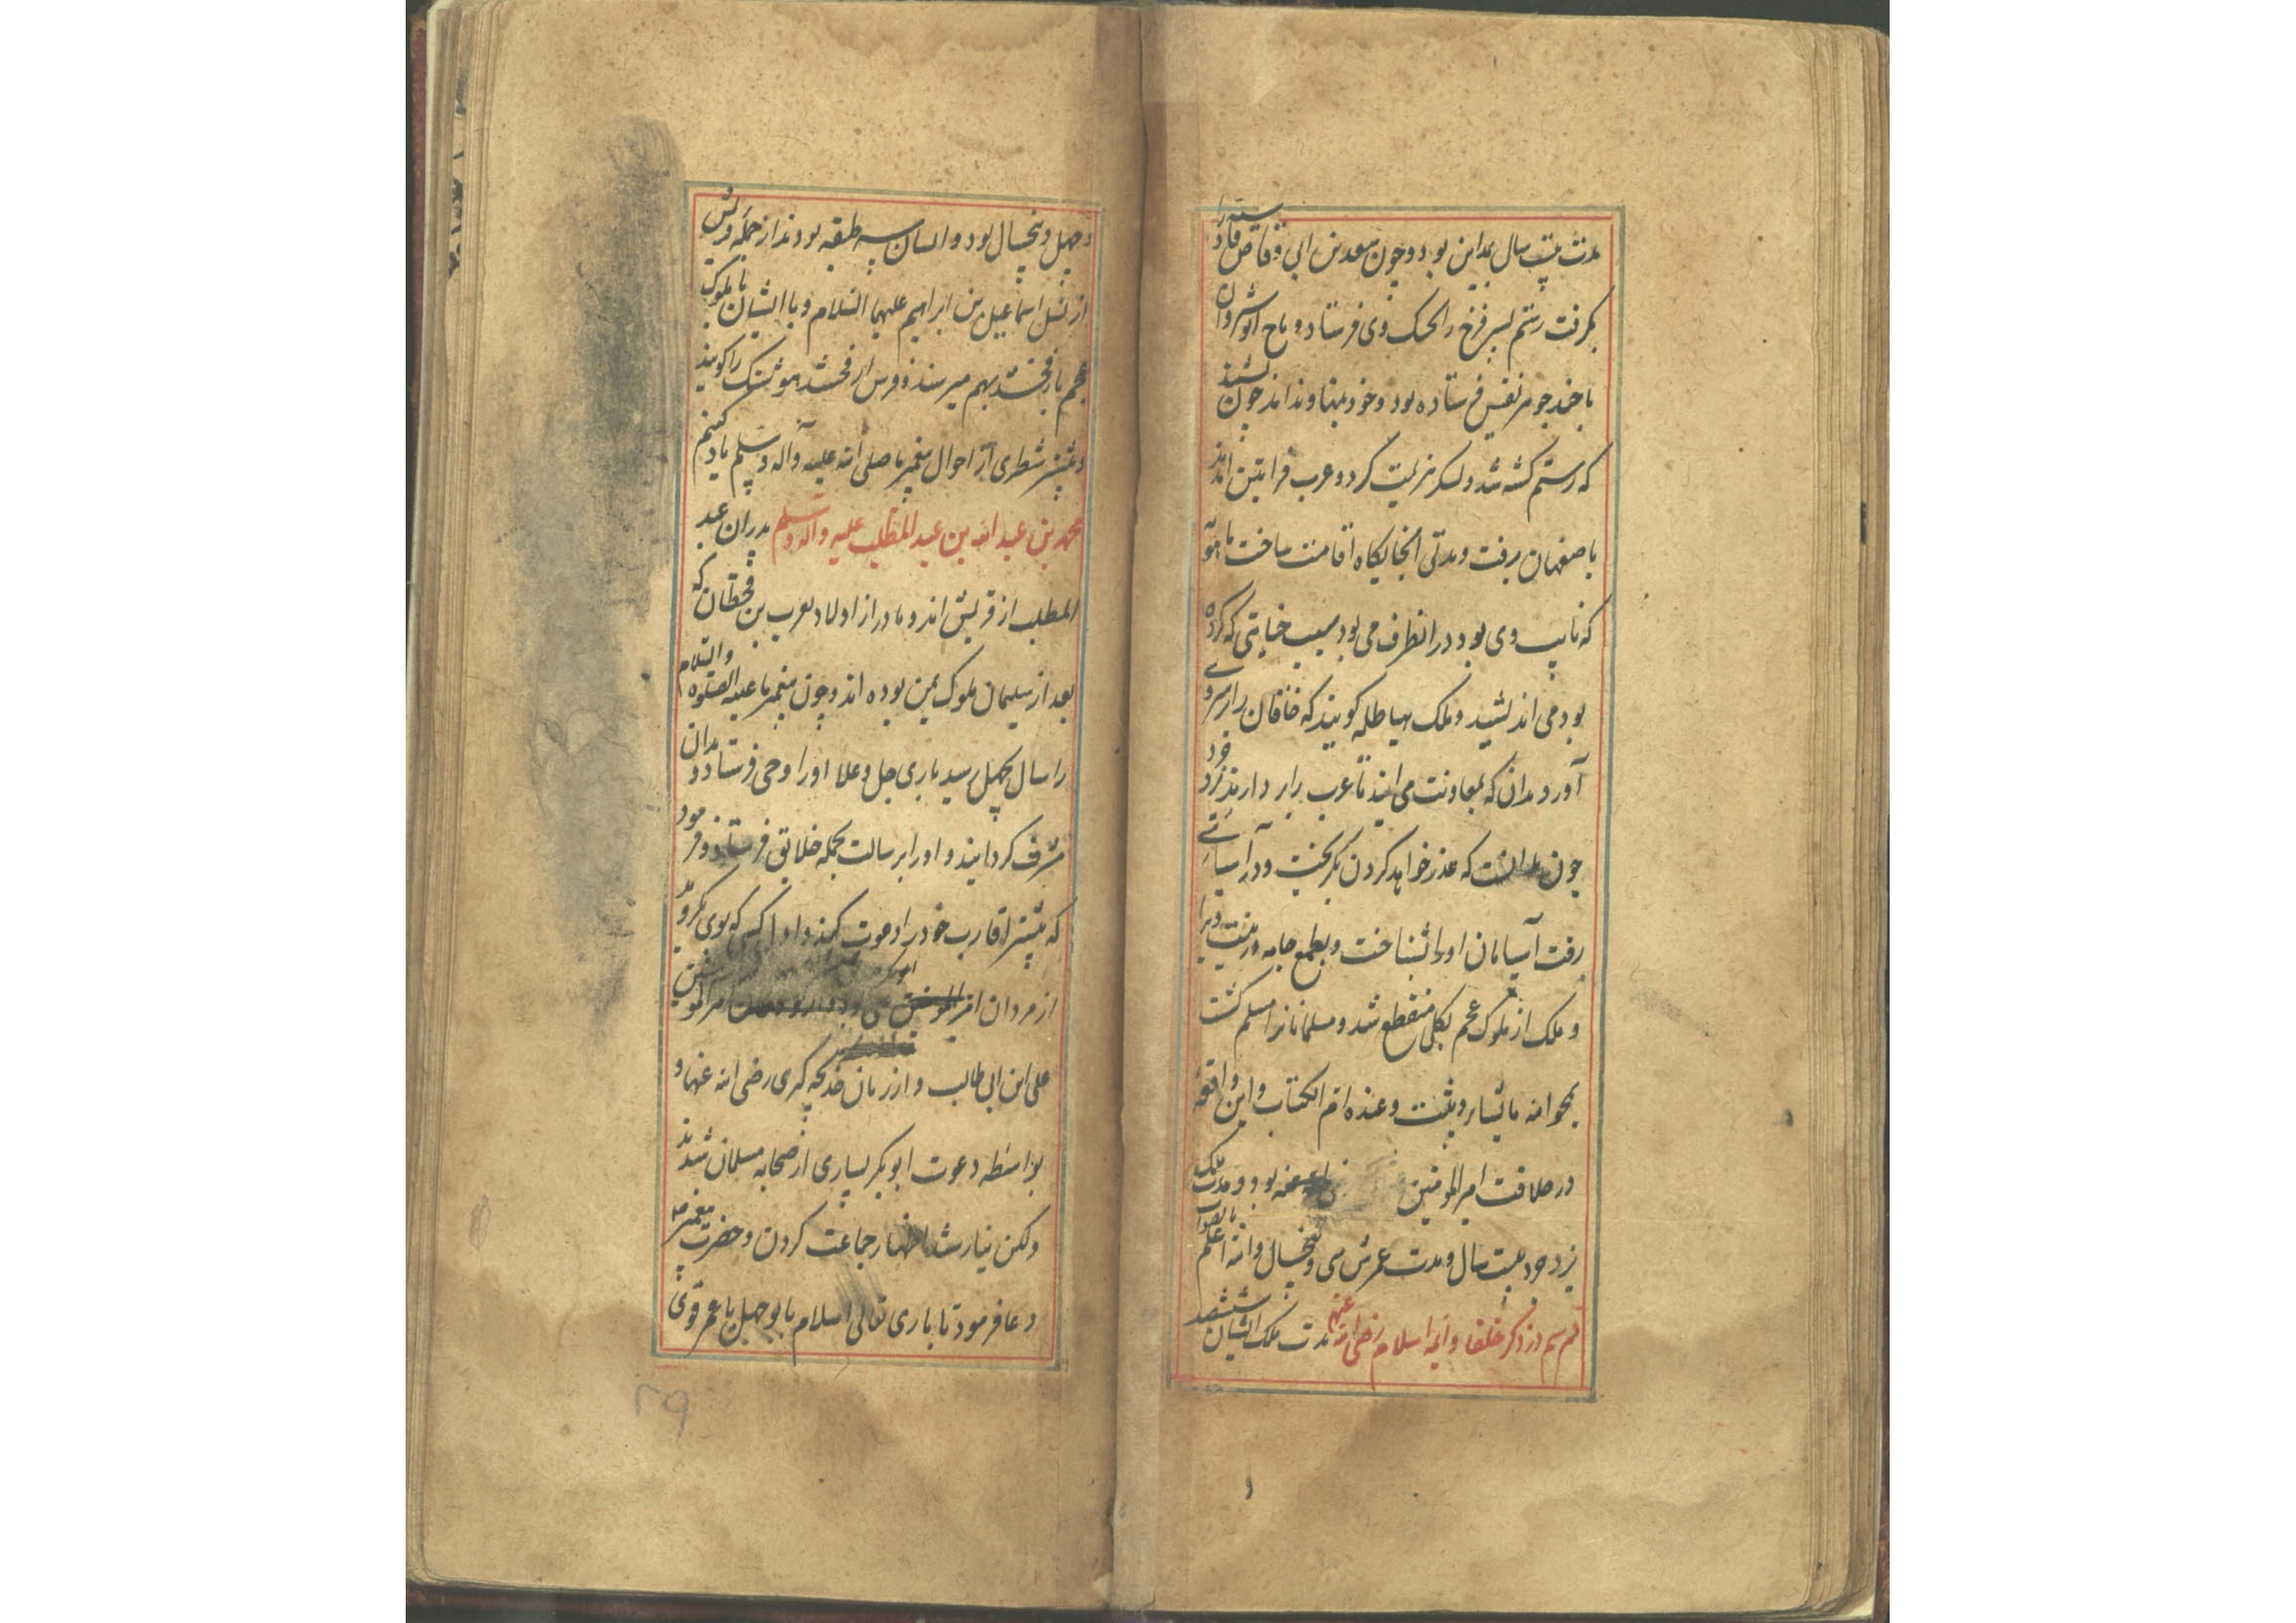 مدت بیست سال بمداین بود و چون سعد بن ابی وقاص قادسیه را
بکرفت رستم پسر فرخ را بجنک وی فرستاد و تاج انوشروان
با خمد جوهر نفیس فرستاده بود و خود بنهاوند اند چون بشنید
که رستم کشته شد و لسکر هزیمت کرد و عرب فرا پیش آمدند
باصفهان برفت و مدتی انجایکاه اقامت ساخت ماهوی
که نایب وی بود در انطرف می بود بسبب خیانتی که کرده
بود می اندیشید و ملک هیاطله کویند که خاقان را برسر وی
آورد بدان که بمعاونت می ایند تا عرب را باز دارند نزد خود
چون بدانست که عذر خواهد کردن بکریخت و در آسیائی
رفت آسیابان او را بشناخت و بطمع جامه و زینت ویرا
و ملک از ملوک عجم بکلی منقطع شد و مسلمانانرا مسلم کشت
یمحوا الله ما یشاء و یثبت و عنده ام الکتاب و این واقعه
در خلافت امیر المومنین عنه بود و مدت ملک
یزدجرد بیست سال و مدت عمرش سی و پنجسال و الله اعلم بالصواب
قسم سیم در ذکر خلفا و ائمه اسلام رضی الله عنهم مدت ملک ایشان ششصد
و چهل و پنجسال بود و ایشان سه طبقه بودند از جمله قریش
از نسل اسماعیل بن ابراهیم علیهما السلام و با ایشان با ملوک
عجم بارفخشد بهم میرسند و فرس ارفخشد هوشنک را کویند
و بیشتر شطری از احوال پیغمبر ما صلی الله علیه و آله وسلم یاد کنیم
محمد بن عبد الله بن عبد المطلب علیه و آله وسلم پدران عبد
المطلب از قریش اند و مادر از اولاد یعرب بن قحطان که
بعد از سلیمان ملوک یمن بوده اند و چون پیغمبر ما علیه الصلوه والسلام
را سال بچهل رسید باری جل و علا او را وحی فرستاد و بدان
مشرف کردانید و او را برسالت بجمله خلایق فرستاد و فرمود
که پیشتر اقارب خود را دعوت کند و اول کسی که بوی بکروید
از مردان امیر المومنین امیر المومنین
علی ابن ابی طالب و از زنان خدیجه کبری رضی الله عنها و
بواسطه دعوت ابوبکر بسیاری از صحابه مسلمان شدند
ولکن نیارستند اظهار جماعت کردن و حضرت پیغمبر
دعا فرمود تا باری تعالی اسلام بابوجهل یا عمر قوی
۲۹